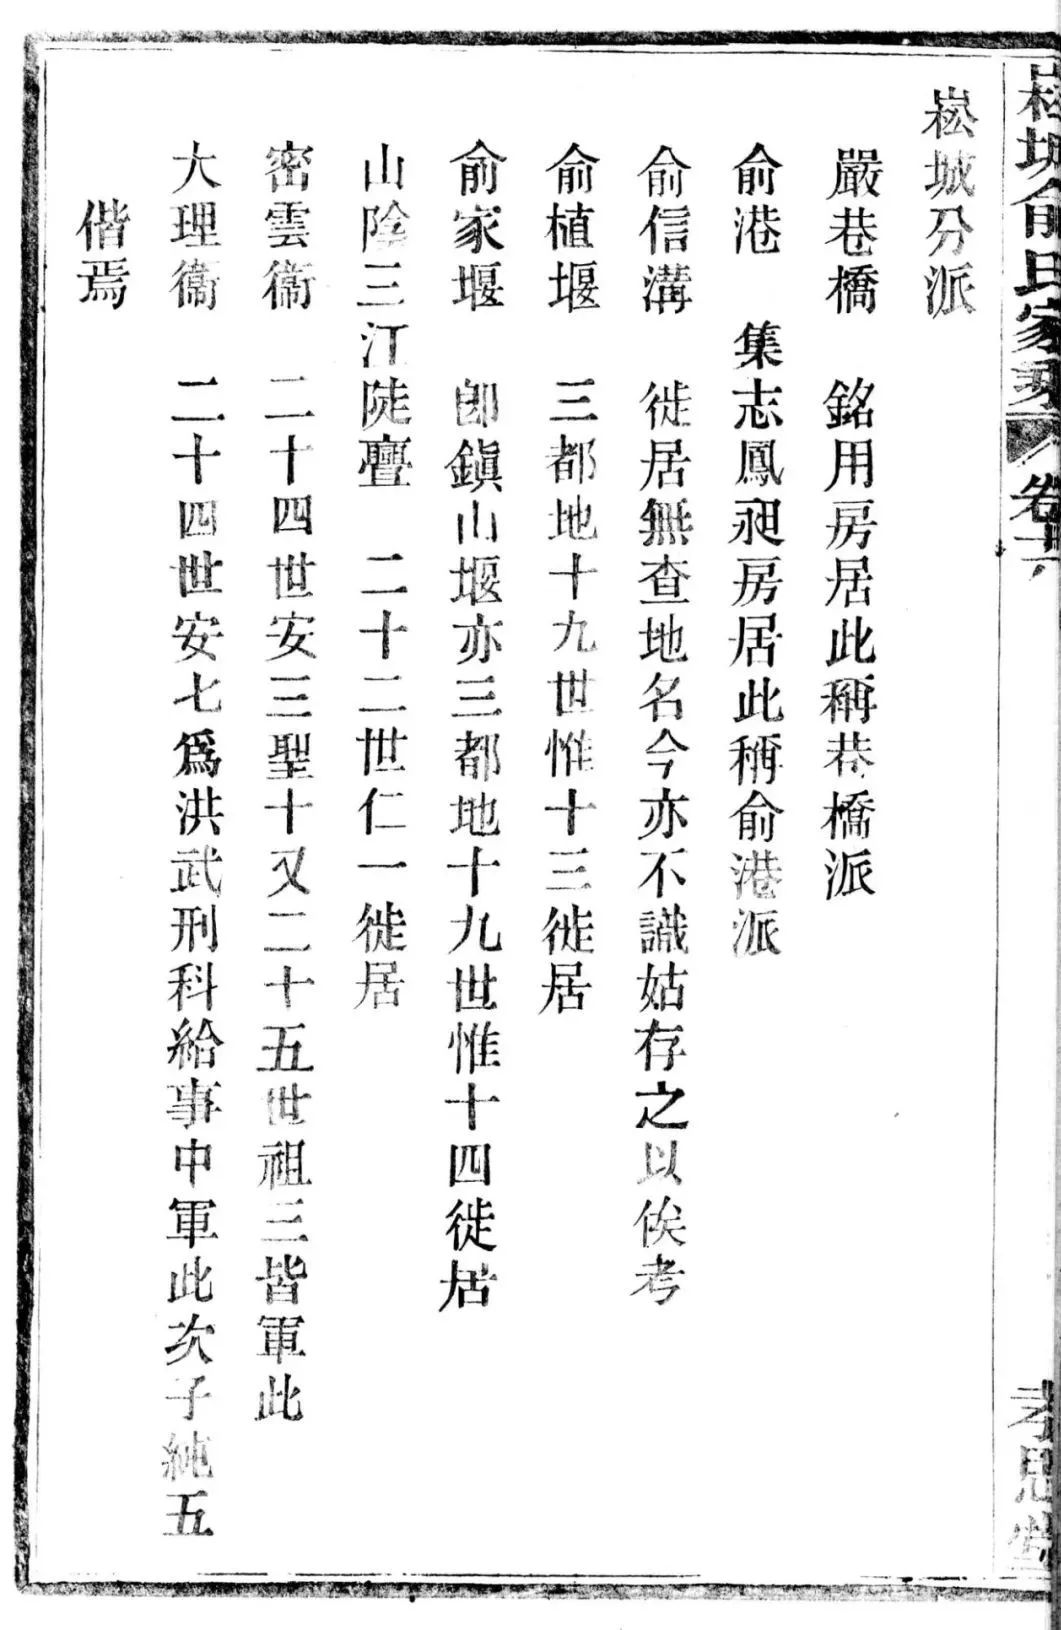 崧城俞氏家乘 卷十六
孝思堂
崧城分派
嚴巷橋 銘用房居此稱巷橋派
俞港 集志鳳昶房居此稱俞港派
俞信溝 徙居無查地名今亦不識姑存之以俟考
俞植堰 三都地十九世惟十三徙居
俞家堰 卽鎭山堰亦三都地十九世惟十四徙居
山陰三江陡亹 二十二世仁一徙居
密雲衞 二十四世安三聖十又二十五世祖三皆軍此
大理衞 二十四世安七爲洪武刑科給事中軍此次子純五
偕焉